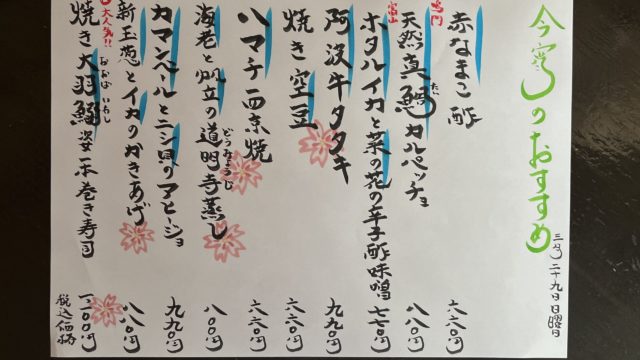 今宵のおすすめ
三月二十九日 日曜
赤なまこ酢 六六〇円
鳴門
天然真鯛カルパッチョ 八八〇円
たい
富山
ホタルイカと菜の花の辛子酢味噌 七七〇円
阿波牛タタキ 九九〇円
焼き空豆 六六〇円
ハマチ西京焼 六六〇円
海老と帆立の道明寺蒸し 八八〇円
どうみょうじ
カマンベールとニシ貝のアヒージョ 九九〇円
新玉葱とイカのかきあげ 八八〇円
大人気!!
焼き大羽鰯姿一本巻き寿司 一、一〇〇円
おおば いわし
税込価格